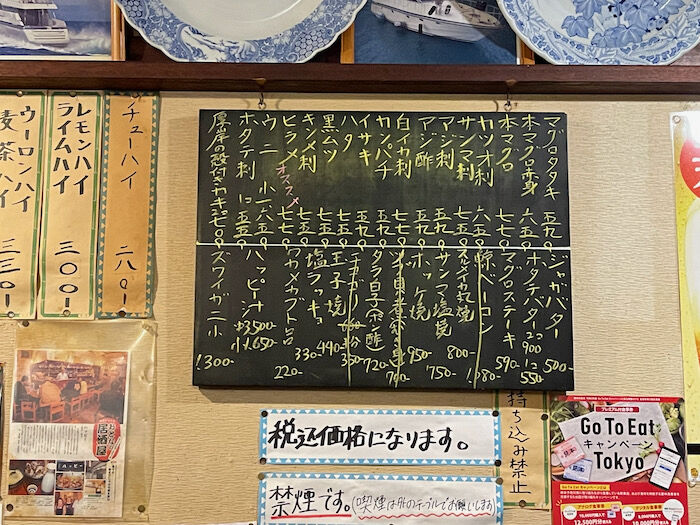 マグロタタキ 五五〇
本マグロ赤身 五九〇
本マグロ 七七〇
カツオ刺 六五〇
サンマ刺 七五〇
アジ刺 五五〇
アジ酢 五五〇
白イカ刺 七五〇
カンパチ 五九〇
イサキ 五九〇
ハタ 七五〇
黒ムツ 七五〇
キンメ刺 七七〇
ヒラメ 七七〇
オススメ
ウニ 小 一六五〇
ホタテ刺 五五〇
厚岸の殻付きカキ
ジャガバター 500-
ホタテバター 2コ 900 1コ 550
マグロステーキ 590-
ベーコン 1080-
800-
サンマ塩焼 750-
ホッケ焼 950-
700-
タラ白子ポン酢 720-
玉子焼 440-
塩ラッキョ 330-
ワカメカブト
220-
ハッピー汁 中3500- 小1.650-
ズワイガニ小 1300-
チューハイ 二八〇-
レモンハイ
ライムハイ 三〇〇-
ウーロンハイ
麦茶ハイ 三三〇-
税込価格になります。
禁煙です。(喫煙は外のテーブルでお願いします)
持ち込み禁止
居酒屋
プレミアム付食事券
Go To Eat
キャンペーン
Tokyo
アナログ食事券
デジタル食事券
12,500円
10,000円